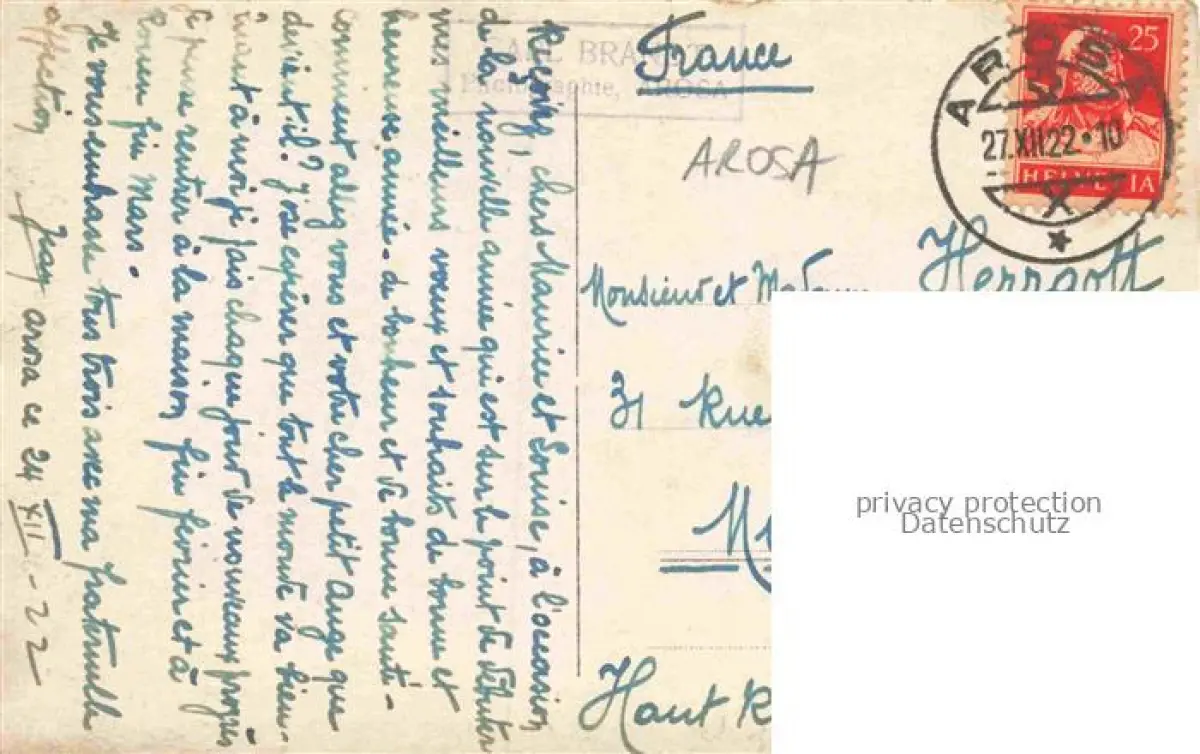 Reçois, chers Maurice et Louise, à l'occasion
de la nouvelle année qui est sur le point de débuter
mes meilleurs vœux et souhaits de bonne et
heureuse année - de bonheur et de bonne santé -
Comment allez vous et votre cher petit Ange que
devient-il? J'ose espérer que tout le monde va bien -
Quant à moi je fais chaque jour de nouveaux progrès
Je pense rentrer à la maison fin février et à
Rouen fin Mars.
Je vous embrasse tous trois avec ma fraternelle
affection
arosa ce 24 XII - 22
BRAN
Photographie, AROSA
France
AROSA
25
HELVETIA
AROSA
27.XII.22·10
X
Monsieur et Madame Herrgott
31 Rue
M
Haut R
privacy protection
Datenschutz